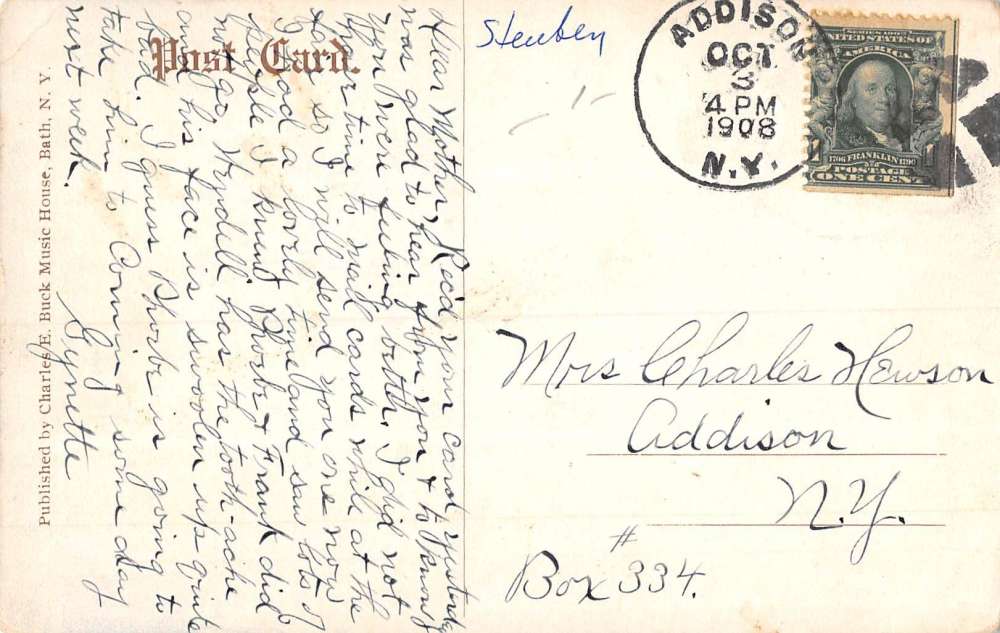 Post Card.
Steuben
ADDISON
OCT
3
4 PM
1908
N.Y.
SERIES 1902
UNITED STATES OF
AMERICA
1706 FRANKLIN 1790
POSTAGE
ONE CENT
Dear Mother Rec'd your card yesterday
was glad to hear from you & to know
you were feeling better. I did not
have time to mail cards while at the
so I will send you one now
I had a lovely time and saw lots of
people I knew Phoebe & Frank did
not go. Wendell has the tooth-ache
and his face is swoolen up quite
bad. I guess Phoebe is going to
take him to Corning some day
next week.
Lynette
Mrs Charles Hewson
Addison
N.Y.
Box # 334.
Published by Charles E. Buck Music House, Bath, N. Y.